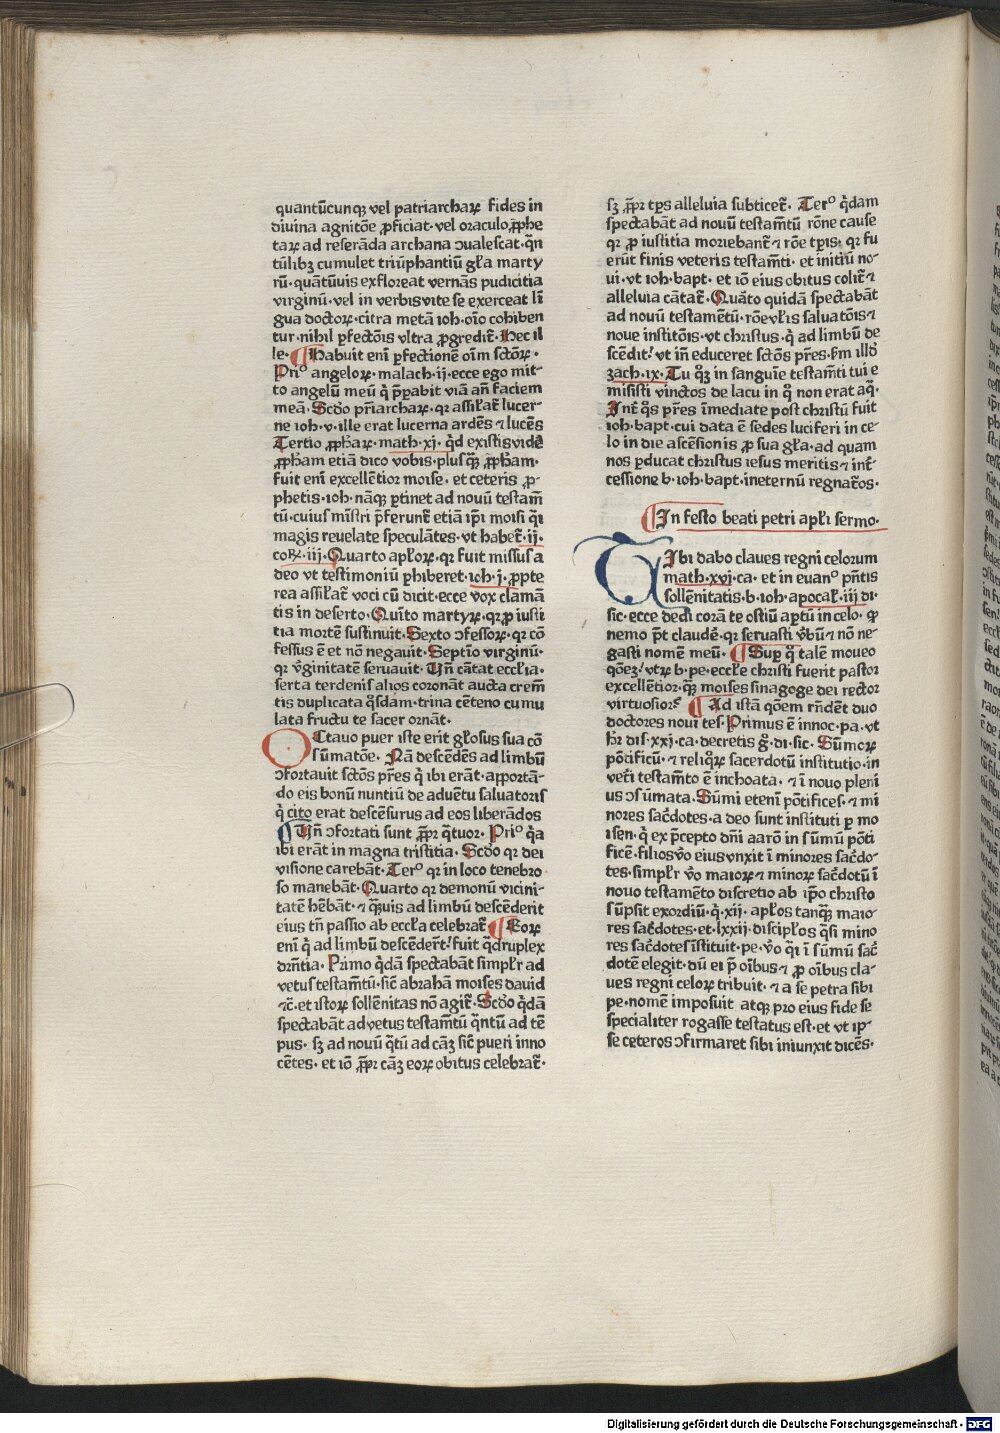 quantūcunqꝫ vel patriarchaꝝ fides in
diuina agnitōe ꝓficiat·vel oraculo ꝓphe
taꝝ ad reserāda archana ꝯualescat·qñ
tūlibꝫ cumulet triūphantiū gła marty
rū·quātūuis exfloreat vernās pudicitia
virginū·vel in verbis vite se exerceat lī
gua doctoꝝ·citra metā ioh·oīo cohiben
tur·nihil ꝑfectōis vltra ꝓgredit̄·Hec il
le·¶Habuit eni ꝑfectionē oīm sctōꝝ·
Prio angeloꝝ·malach·ij·ecce ego mit-
to angelū meū q̇ p̄parabit viā añ faciem
meā·Scdo pr̄iarchaꝝ·qꝛ assilat̄ lucer-
ne ioh·v·ille erat lucerna ardēs ⁊ lucēs
Tertio ꝓphaꝝ·math·xj·qd existis vidē
ꝓpham etiā dico vobis·plusqꝫ ꝓpham·
fuit eni excellētior moise·et ceteris ꝓ-
phetis·ioh·nāqꝫ ꝑtinet ad nouū testam̄
tū·cuius mīstri p̄ferunt̄ etiā ip̄i moisi q̄i
magis reuelate speculātes·vt habet̄·ij·
coꝝ·iij·Quarto apłoꝝ·qꝛ fuit missus a
deo vt testimoniū phiberet·ioh·j·ꝓpte
rea assilat̄ voci cū dicit·ecce vox clamā
tis in deserto·Quīto martyꝝ·qꝛ ꝓ iusti
tia mortē sustinuit·Sexto ꝯfessoꝝ·qꝛ cō
fessus ē et nō negauit·Septīo virginū·
qꝛ v̄ginitatē seruauit·Uñ cātat ecclia·
serta terdenis alios coronāt aucta crem̄
tis duplicata q̄sdam·trina cēteno cumu
lata fructu te sacer ornāt·
OCtauo puer iste erit głosus sua cō
sūmatōe·Nā descēdēs ad limbū
ꝯfortauit sctōs pr̄es q̇ ibi erāt·apportā-
do eis bonū nuntiū de aduētu saluatoris
q̇ cito erat descēsurus ad eos liberādos
¶Uñ ꝯfortati sunt ꝓpꝛ q̄tuor·Prio q̇a
ibi erāt in magna tristitia·Scdo qꝛ dei
visione carebāt·Tero qꝛ in loco tenebro
so manebāt·Quarto qꝛ demonū vicini-
tatē hēbāt·⁊ qꝫuis ad limbū descēderit
eius tñ passio ab eccła celebrat̄·¶Eoꝝ
eni q̇ ad limbū descēdert̄·fuit q̄druplex
dr̄ntia·Primo q̇dā spectabāt simplr ad
vetus testam̄tū·sic̄ abrahā moises dauid
⁊c̄·et istoꝝ sollēnitas nō agit̄·Scdo q̇dā
spectabāt ad vetus testam̄tū q̄ntū ad tē
pus·sꝫ ad nouū q̄tū ad cāꝫ sic̄ pueri inno
cētes·et iō ꝓpꝛ cāꝫ eoꝝ obitus celebrat̄·
sꝫ ꝓpꝛ tps alleluia subticet̄·Tero q̇dam
spectabāt ad nouū testam̄tū rōne cause
qꝛ ꝓ iustitia moriebant̄ ⁊ rōe tp̄is·qꝛ fu
erūt finis veteris testam̄ti·et initiū no-
ui·vt ioh·bapt·et iō eius obitus colit̄ ⁊
alleluia cātat̄·Quāto quidā spectabāt
ad nouū testamētū·rōe vl̄is saluatōis ⁊
noue institōis·vt christus·q̇ ad limbū de
scēdit·vt in̄ educeret sctōs pr̄es·ẜm illd
zach·ix·Tu qꝫ in sanguīe testam̄ti tui e
misisti vinctos de lacu in q̇ non erat aq̄·
Int̄ q̄s pr̄es īmediate post christū fuit
ioh·bapt·cui data ē sedes luciferi in ce-
lo in die ascēsionis ꝓ sua gła·ad quam
nos ꝑducat christus iesus meritis ⁊ int̄
cessione b·ioh·bapt·in eternū regnat̄os·
¶In festo beati petri apłi sermo·
TIbi dabo claues regni celorum
math·xvj·ca·et in euano p̄ntis
sollēnitatis·b·ioh·apocal·iij di-
sic·ecce dedi corā te ostiū aꝑtū in celo·qꝫ
nemo pt̄ claudē·qꝛ seruasti v̄bū ⁊ nō ne-
gasti nomē meū·¶Suꝑ q̇ talē moueo
qōeꝫ·vtꝝ b·pe·ecclē christi fuerit pastor
excellētior·qꝫ moises sinagoge dei rector
virtuosior·¶Ad istā qōem rn̄dēt duo
doctores noui tes·Primus ē innoc·pa·vt
hr̄ dis·xxj·ca·decretis g°·di·sic·Sūmoꝝ
pōtificū·⁊ reliqꝝ sacerdotū institutio·in
vet̄i testam̄to ē inchoata·⁊ ī nouo pleni
us ꝯsūmata·Sūmi eteni pōtifices·⁊ mi
nores sac̄dotes·a deo sunt instituti ꝑ mo
isen·q̇ ex p̄cepto dn̄i aarō in sūmū pōti
ficē·filios v̄o eius vnxit ī minores sac̄do-
tes·simplr v̄o maioꝝ ⁊ minoꝝ sac̄dotū ī
nouo testamēto discretio ab ip̄o christo
sūpsit exordiū·q̇·xij·apłos tanqꝫ maio-
res sac̄dotes·et·lxxij·discipłos q̄si mino
res sac̄dotes īstituit·pe·v̄o q̄i ī sūmū sac̄
dotē elegit·dū ei p̄ oībus ⁊ ꝓ oībus cla-
ues regni celoꝝ tribuit·⁊ a se petra sibi
pe·nomē imposuit atqꝫ pro eius fide se
specialiter rogasse testatus est·et vt ip-
se ceteros ꝯfirmaret sibi iniunxit dicēs·
Digitalisierung gefördert durch die Deutsche Forschungsgemeinschaft - DFG